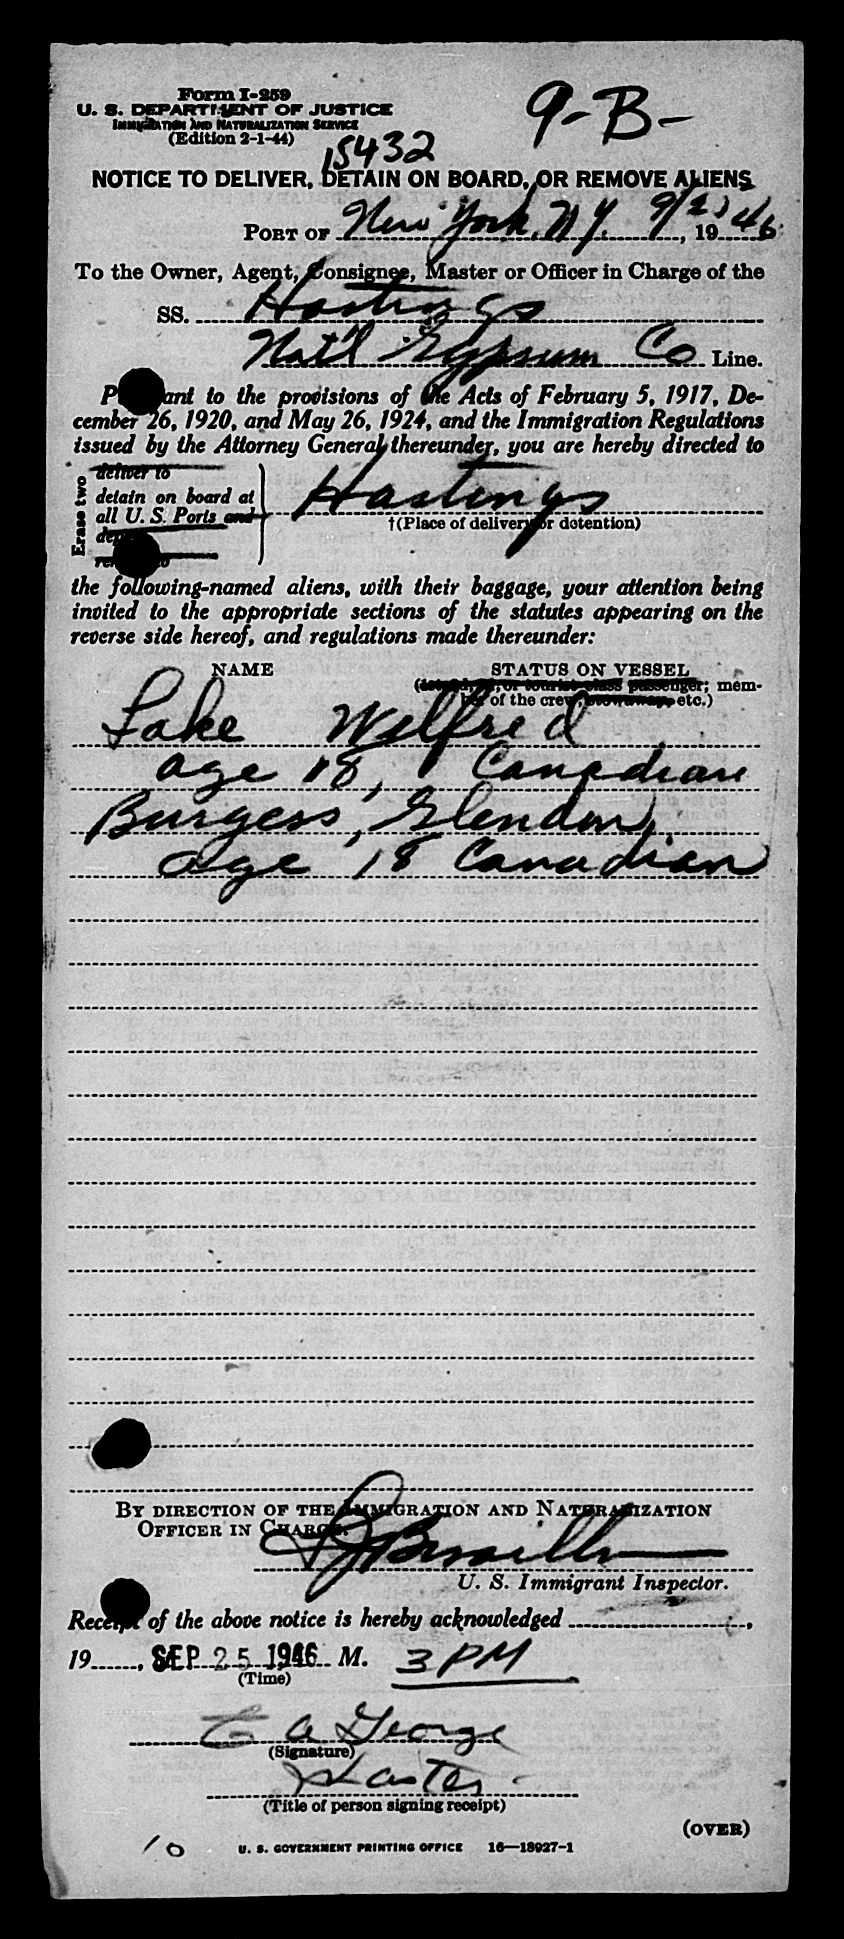 Form I-259
U. S. DEPARTMENT OF JUSTICE
IMMIGRATION AND NATURALIZATION SERVICE
(Edition 2-1-44)
9-B-
15432
NOTICE TO DELIVER, DETAIN ON BOARD, OR REMOVE ALIENS
PORT OF New York, N.Y. 9/25, 1946
To the Owner, Agent, Consignee, Master or Officer in Charge of the
SS. Hastings
Nat'l Gypsum Co Line.
Pursuant to the provisions of the Acts of February 5, 1917, De-
cember 26, 1920, and May 26, 1924, and the Immigration Regulations
issued by the Attorney General thereunder, you are hereby directed to
Erase two
deliver to
detain on board at
all U. S. Ports and
Hastings
†(Place of delivery or detention)
the following-named aliens, with their baggage, your attention being
invited to the appropriate sections of the statutes appearing on the
reverse side hereof, and regulations made thereunder:
NAME STATUS ON VESSEL
(1st, 2d, or tourist class passenger; mem-
ber of the crew, stowaway, etc.)
Lake Wilfred
age 18, Canadian
Burgess, Glendon,
age 18 Canadian
BY DIRECTION OF THE IMMIGRATION AND NATURALIZATION
OFFICER IN CHARGE.
U. S. Immigrant Inspector.
Receipt of the above notice is hereby acknowledged
19......, SEP 25 1946 M. 3 PM
(Time)
C A George
(Signature)
Master
(Title of person signing receipt)
(OVER)
10 U. S. GOVERNMENT PRINTING OFFICE 16—18927-1